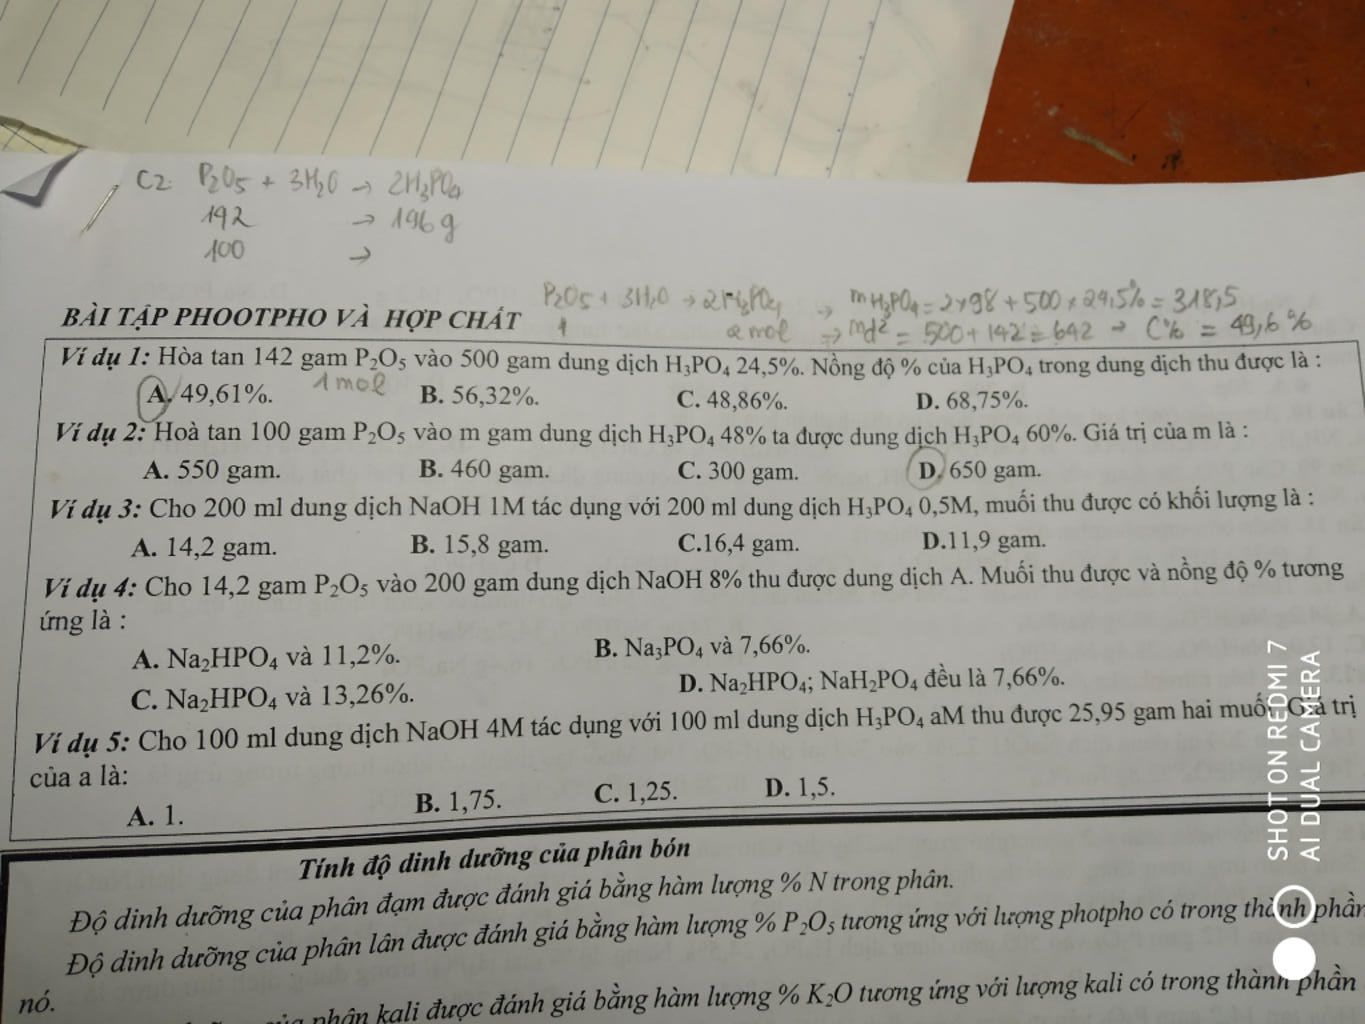 C2: P₂O₅ + 3H₂O → 2H₃PO₄
142 → 196g
100 →
P₂O₅ + 3H₂O → 2H₃PO₄ → mH₃PO₄ = 2×98 + 500×24,5% = 318,5
1 2 mol → mdd = 500 + 142 = 642 → C% = 49,6%
BÀI TẬP PHOOTPHO VÀ HỢP CHẤT
Ví dụ 1: Hòa tan 142 gam P₂O₅ vào 500 gam dung dịch H₃PO₄ 24,5%. Nồng độ % của H₃PO₄ trong dung dịch thu được là :
1 mol
A. 49,61%. B. 56,32%. C. 48,86%. D. 68,75%.
Ví dụ 2: Hoà tan 100 gam P₂O₅ vào m gam dung dịch H₃PO₄ 48% ta được dung dịch H₃PO₄ 60%. Giá trị của m là :
A. 550 gam. B. 460 gam. C. 300 gam. D. 650 gam.
Ví dụ 3: Cho 200 ml dung dịch NaOH 1M tác dụng với 200 ml dung dịch H₃PO₄ 0,5M, muối thu được có khối lượng là :
A. 14,2 gam. B. 15,8 gam. C.16,4 gam. D.11,9 gam.
Ví dụ 4: Cho 14,2 gam P₂O₅ vào 200 gam dung dịch NaOH 8% thu được dung dịch A. Muối thu được và nồng độ % tương
ứng là :
A. Na₂HPO₄ và 11,2%. B. Na₃PO₄ và 7,66%.
C. Na₂HPO₄ và 13,26%. D. Na₂HPO₄; NaH₂PO₄ đều là 7,66%.
Ví dụ 5: Cho 100 ml dung dịch NaOH 4M tác dụng với 100 ml dung dịch H₃PO₄ aM thu được 25,95 gam hai muối. Giá trị
của a là:
A. 1. B. 1,75. C. 1,25. D. 1,5.
Tính độ dinh dưỡng của phân bón
Độ dinh dưỡng của phân đạm được đánh giá bằng hàm lượng % N trong phân.
Độ dinh dưỡng của phân lân được đánh giá bằng hàm lượng % P₂O₅ tương ứng với lượng photpho có trong thành phần
nó.
phân kali được đánh giá bằng hàm lượng % K₂O tương ứng với lượng kali có trong thành phần
SHOT ON REDMI 7
AI DUAL CAMERA